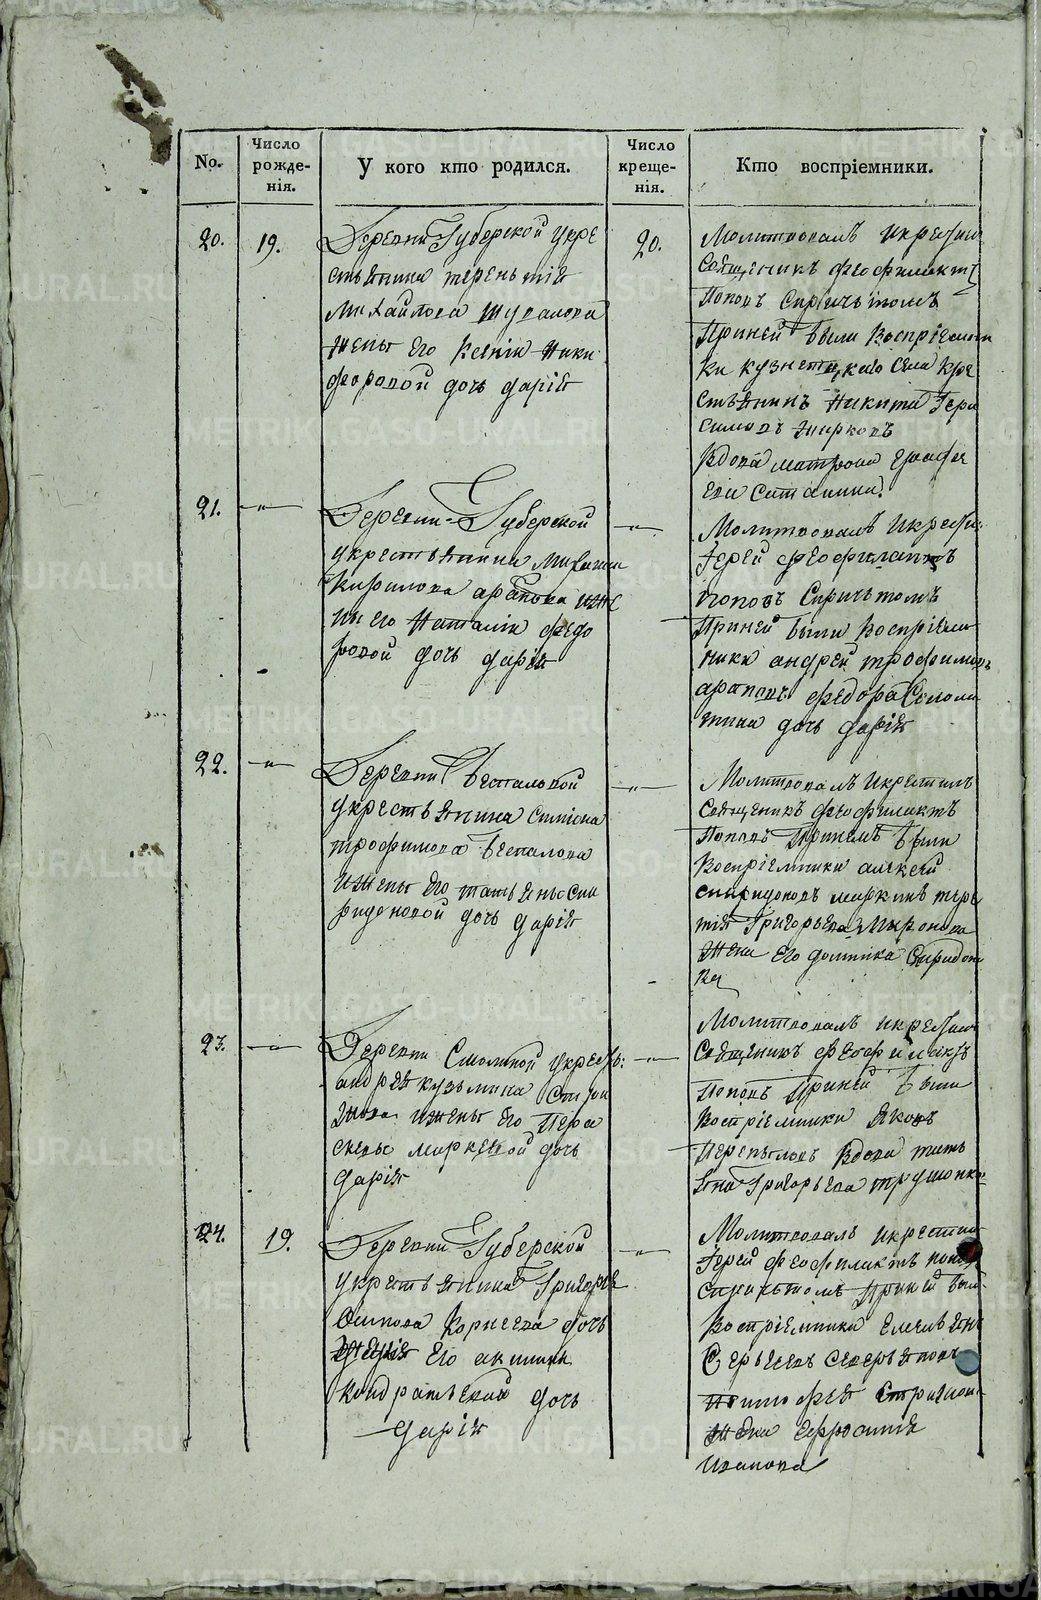 No.
Число рожде-нія.
У кого кто родился.
Число креще-нія.
Кто воспріемники.
20.
19.
Деревни Губерской у кре
стьянина терентія
Михайлова Шувалова
жены его Ксеніи Ники
форовой дочь дарія
20.
Молитвовалъ и крестил
Священникъ феофилактъ
Поповъ Спричтомъ
При ней были Воспріемни
ки кузнецкаго села кре
стьянинъ Никита Гера
симовъ Жирковъ
Вдова матрона
21.
Деревни Губерской
у крестьянина
Кирилова арапова и же
ны его Наталіи федо
ровой дочь дарія
Молитвовалъ и крести
Іерей феофилактъ
Поповъ Спричтомъ
При ней были Воспріем
ники андрей трофимовъ
араповъ федора Селома
тина дочь дарія
22.
Деревни Беспаловой
у крестьянина Симіона
трофимова Беспалова
и жены его татьяны Спи
ридоновой дочь дарія
Молитвовалъ и крестилъ
Священникъ феофилактъ
Поповъ При немъ были
Воспріемники алексей
спиридоновъ маркинъ тере
тія Григорьева Миронова
жена его домника Спиридоно
ва
23.
Деревни Смолиной у крест:
андрея кузьмина
и жены его Пера
скевы маркевой дочь
дарія
Молитвовалъ и крестил
Священникъ феофилактъ
Поповъ При ней были
Воспріемники Яковъ
Перепеловъ Вдова тать
яна Григорьева
24.
19.
Деревни Губерской
у крестьянина Григорье
Осипова Корнеева дочь
его акилины
кондратьевой дочь
дарія
Молитвовалъ и крестил
Іерей феофилактъ попов
Спричтомъ При ней был
Воспріемники Емельян
Сергеевъ северьяновъ
тимофея
жена Ефросинія
иванова
METRIKI.GASO-URAL.RU